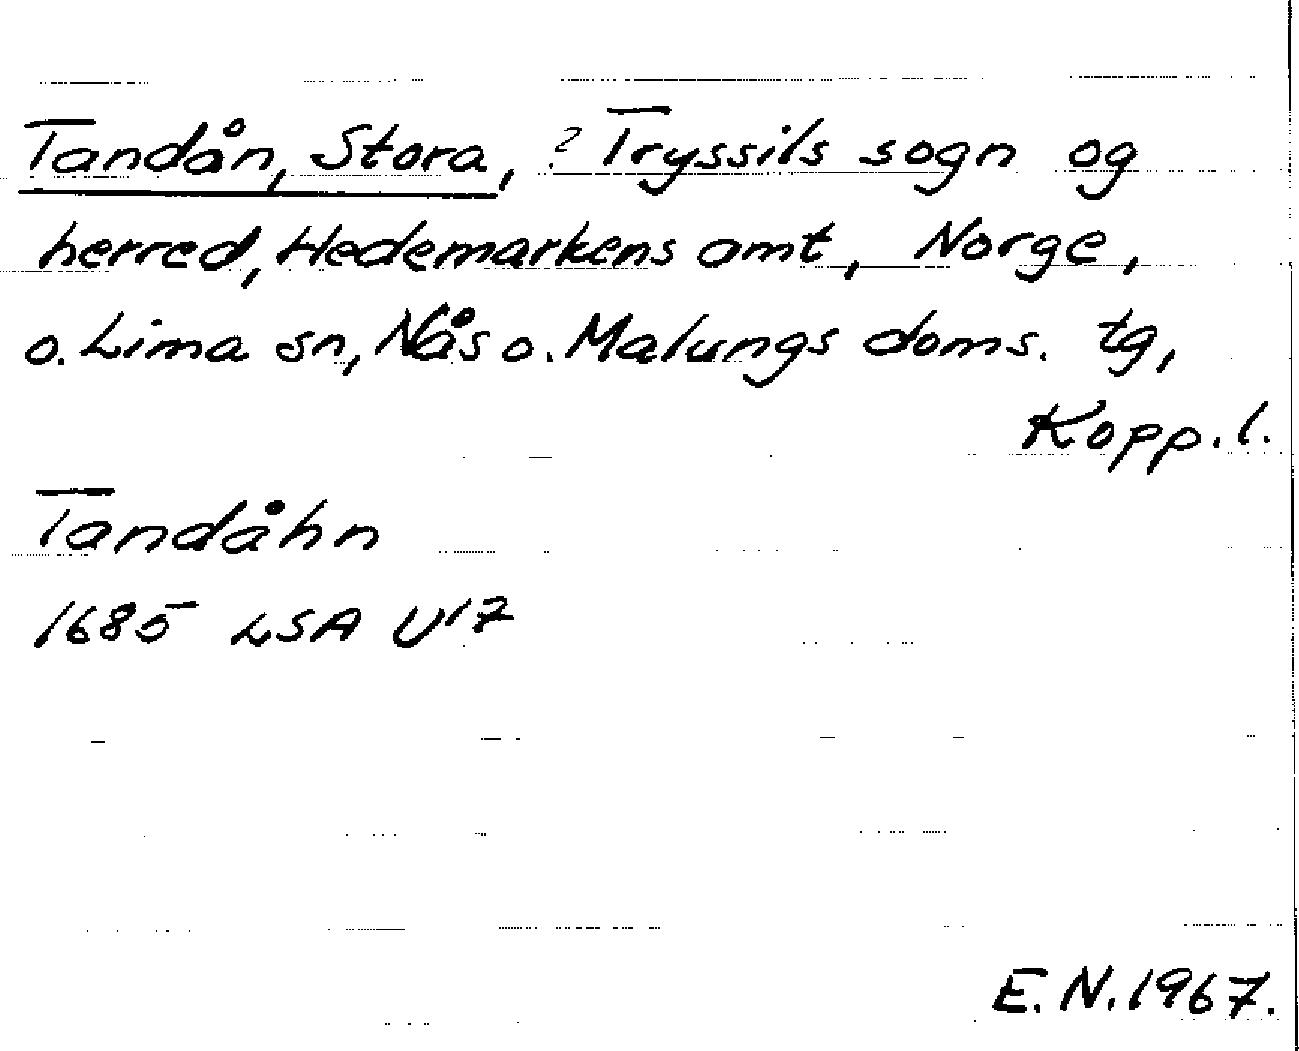 Tandån, Stora, ? Tryssils sogn og
herred, Hedemarkens amt, Norge,
o. Lima sn, Nås o. Malungs doms. tg,
Kopp. l.
Tandåhn
1685 LSA U17
E. N. 1967.